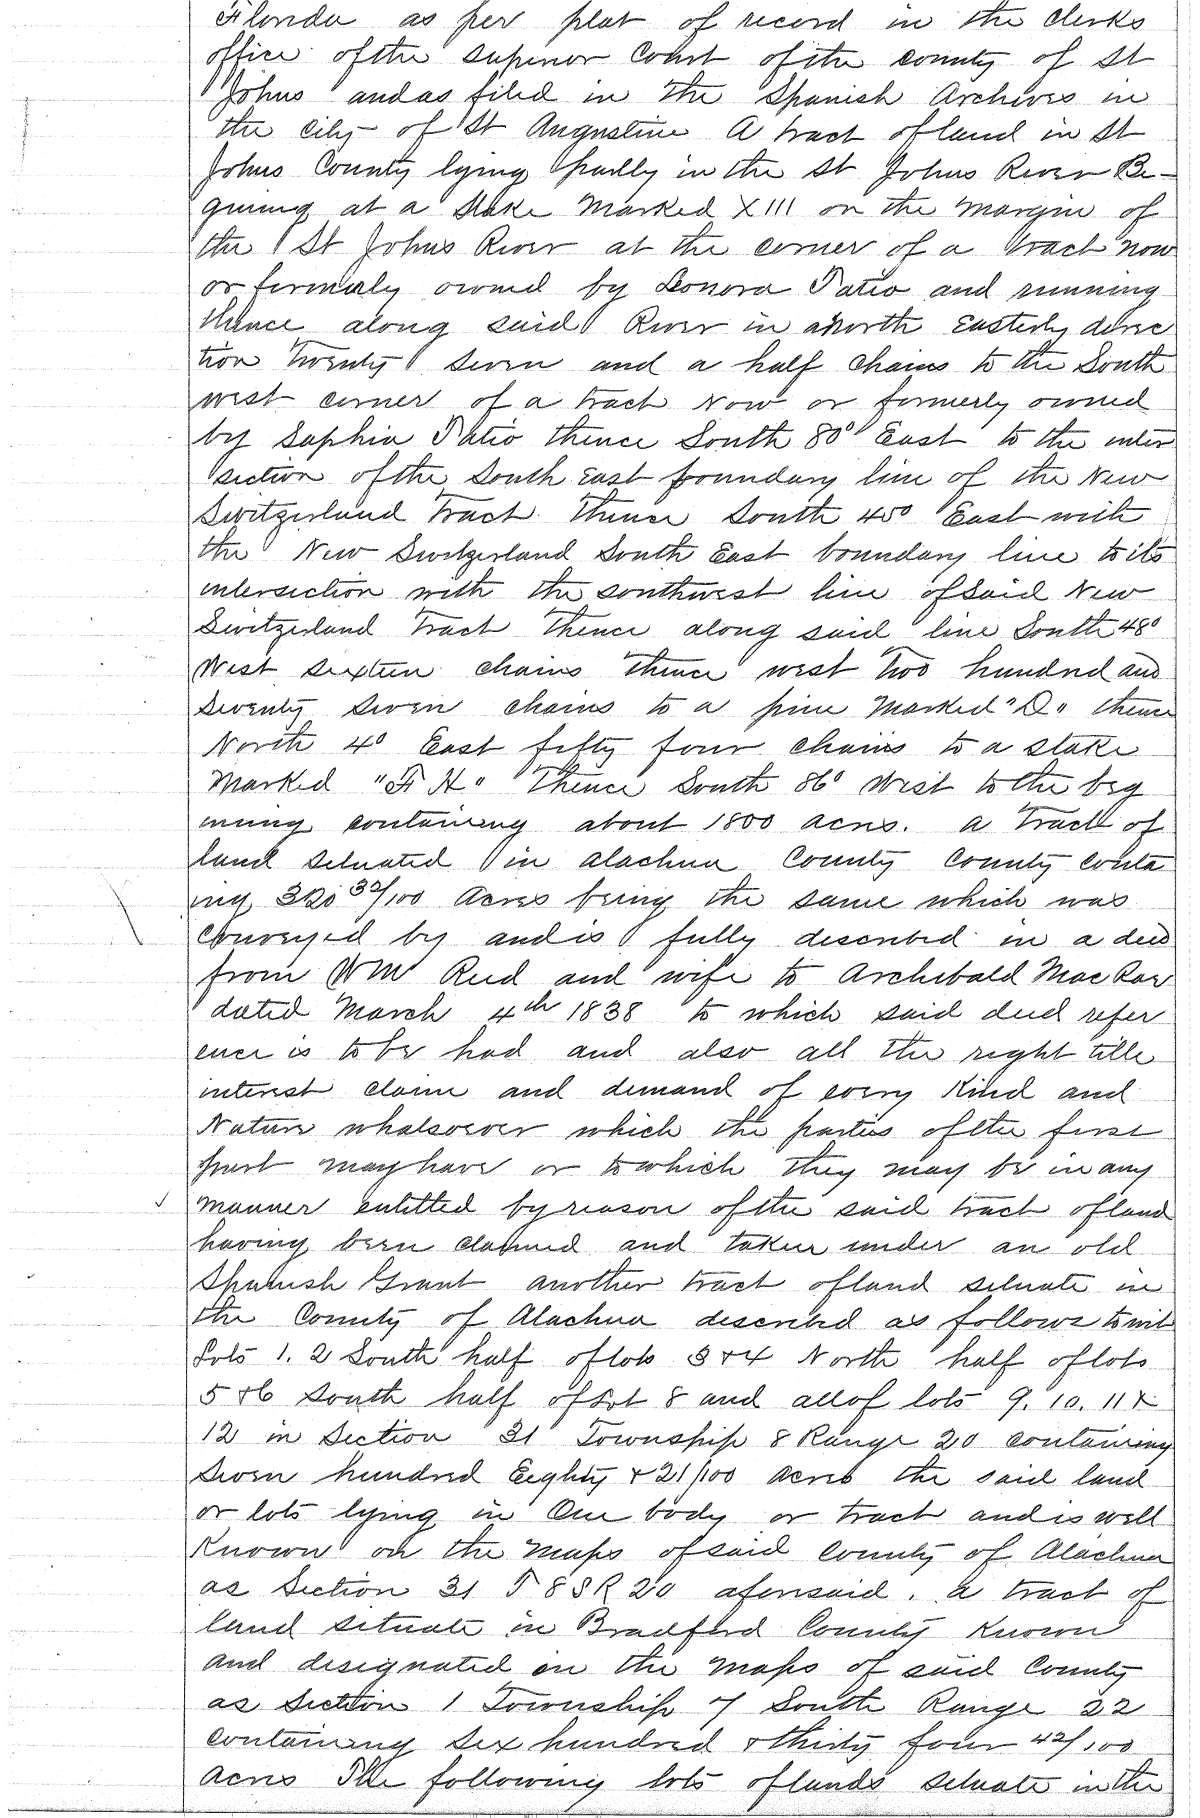 Florida as per plat of record in the clerks
office of the superior Court of the county of St
Johns and as filed in the Spanish Archives in
the city of St Augustine A tract of land in St
Johns County lying partly in the St Johns River Be-
gining at a stake marked XIII on the margin of
the St Johns River at the corner of a tract now
or formerly owned by Leonora Fatio and running
thence along said River in a North Easterly direc
tion twenty seven and a half chains to the South
west corner of a tract now or formerly owned
by Sophia Fatio thence South 80° East to the inter
section of the South East boundary line of the New
Switzerland Tract. Thence South 45° East with
the New Switzerland South East boundary line to its
intersection with the southwest line of said New
Switzerland Tract Thence along said line South 48°
West sixteen chains thence west two hundred and
seventy seven chains to a pine marked "D" thence
North 4° East fifty four chains to a stake
marked "F H" Thence South 86° West to the beg
inning containing about 1800 acres. A tract of
land situated in Alachua County County conta
ing 320 32/100 Acres being the same which was
conveyed by and is fully described in a deed
from Wm Reed and wife to Archibald Mac Rae
dated March 4th 1838 to which said deed refer
ence is to be had and also all the right title
interest claim and demand of every kind and
Nature whatsoever which the parties of the first
part may have or to which they may be in any
manner entitled by reason of the said tract of land
having been claimed and taken under an old
Spanish Grant another tract of land situate in
the County of Alachua described as follows to wit
Lots 1. 2 South half of lots 3 & 4 North half of lots
5 & 6 South half of Lot 8 and all of lots 9. 10. 11 &
12 in Section 31 Township 8 Range 20 containing
seven hundred Eighty & 21/100 acres the said land
or lots lying in One body or tract and is well
known on the maps of said County of Alachua
as Section 31 T 8 S R 20 aforesaid. A tract of
land situate in Bradford County known
and designated on the maps of said County
as Section 1 Township 7 South Range 22
containing six hundred & thirty four 42/100
acres The following lots of lands situate in the